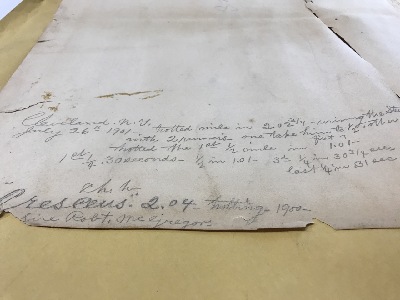 Cleveland. N.Y.
July 26th 1901 - trotted mile in 2.02¾ - driving the
with 2 runners one take him to ½, other
trotted the 1st ½ mile in 1.01 -
1st ¼ 30 seconds - ½ in 1.01 - 3d ¼ in 30¾ sec
last ¼ in 31 sec
"Cresceus" 2.04 - trotting - 1900 -
Sire Robt. McGregor